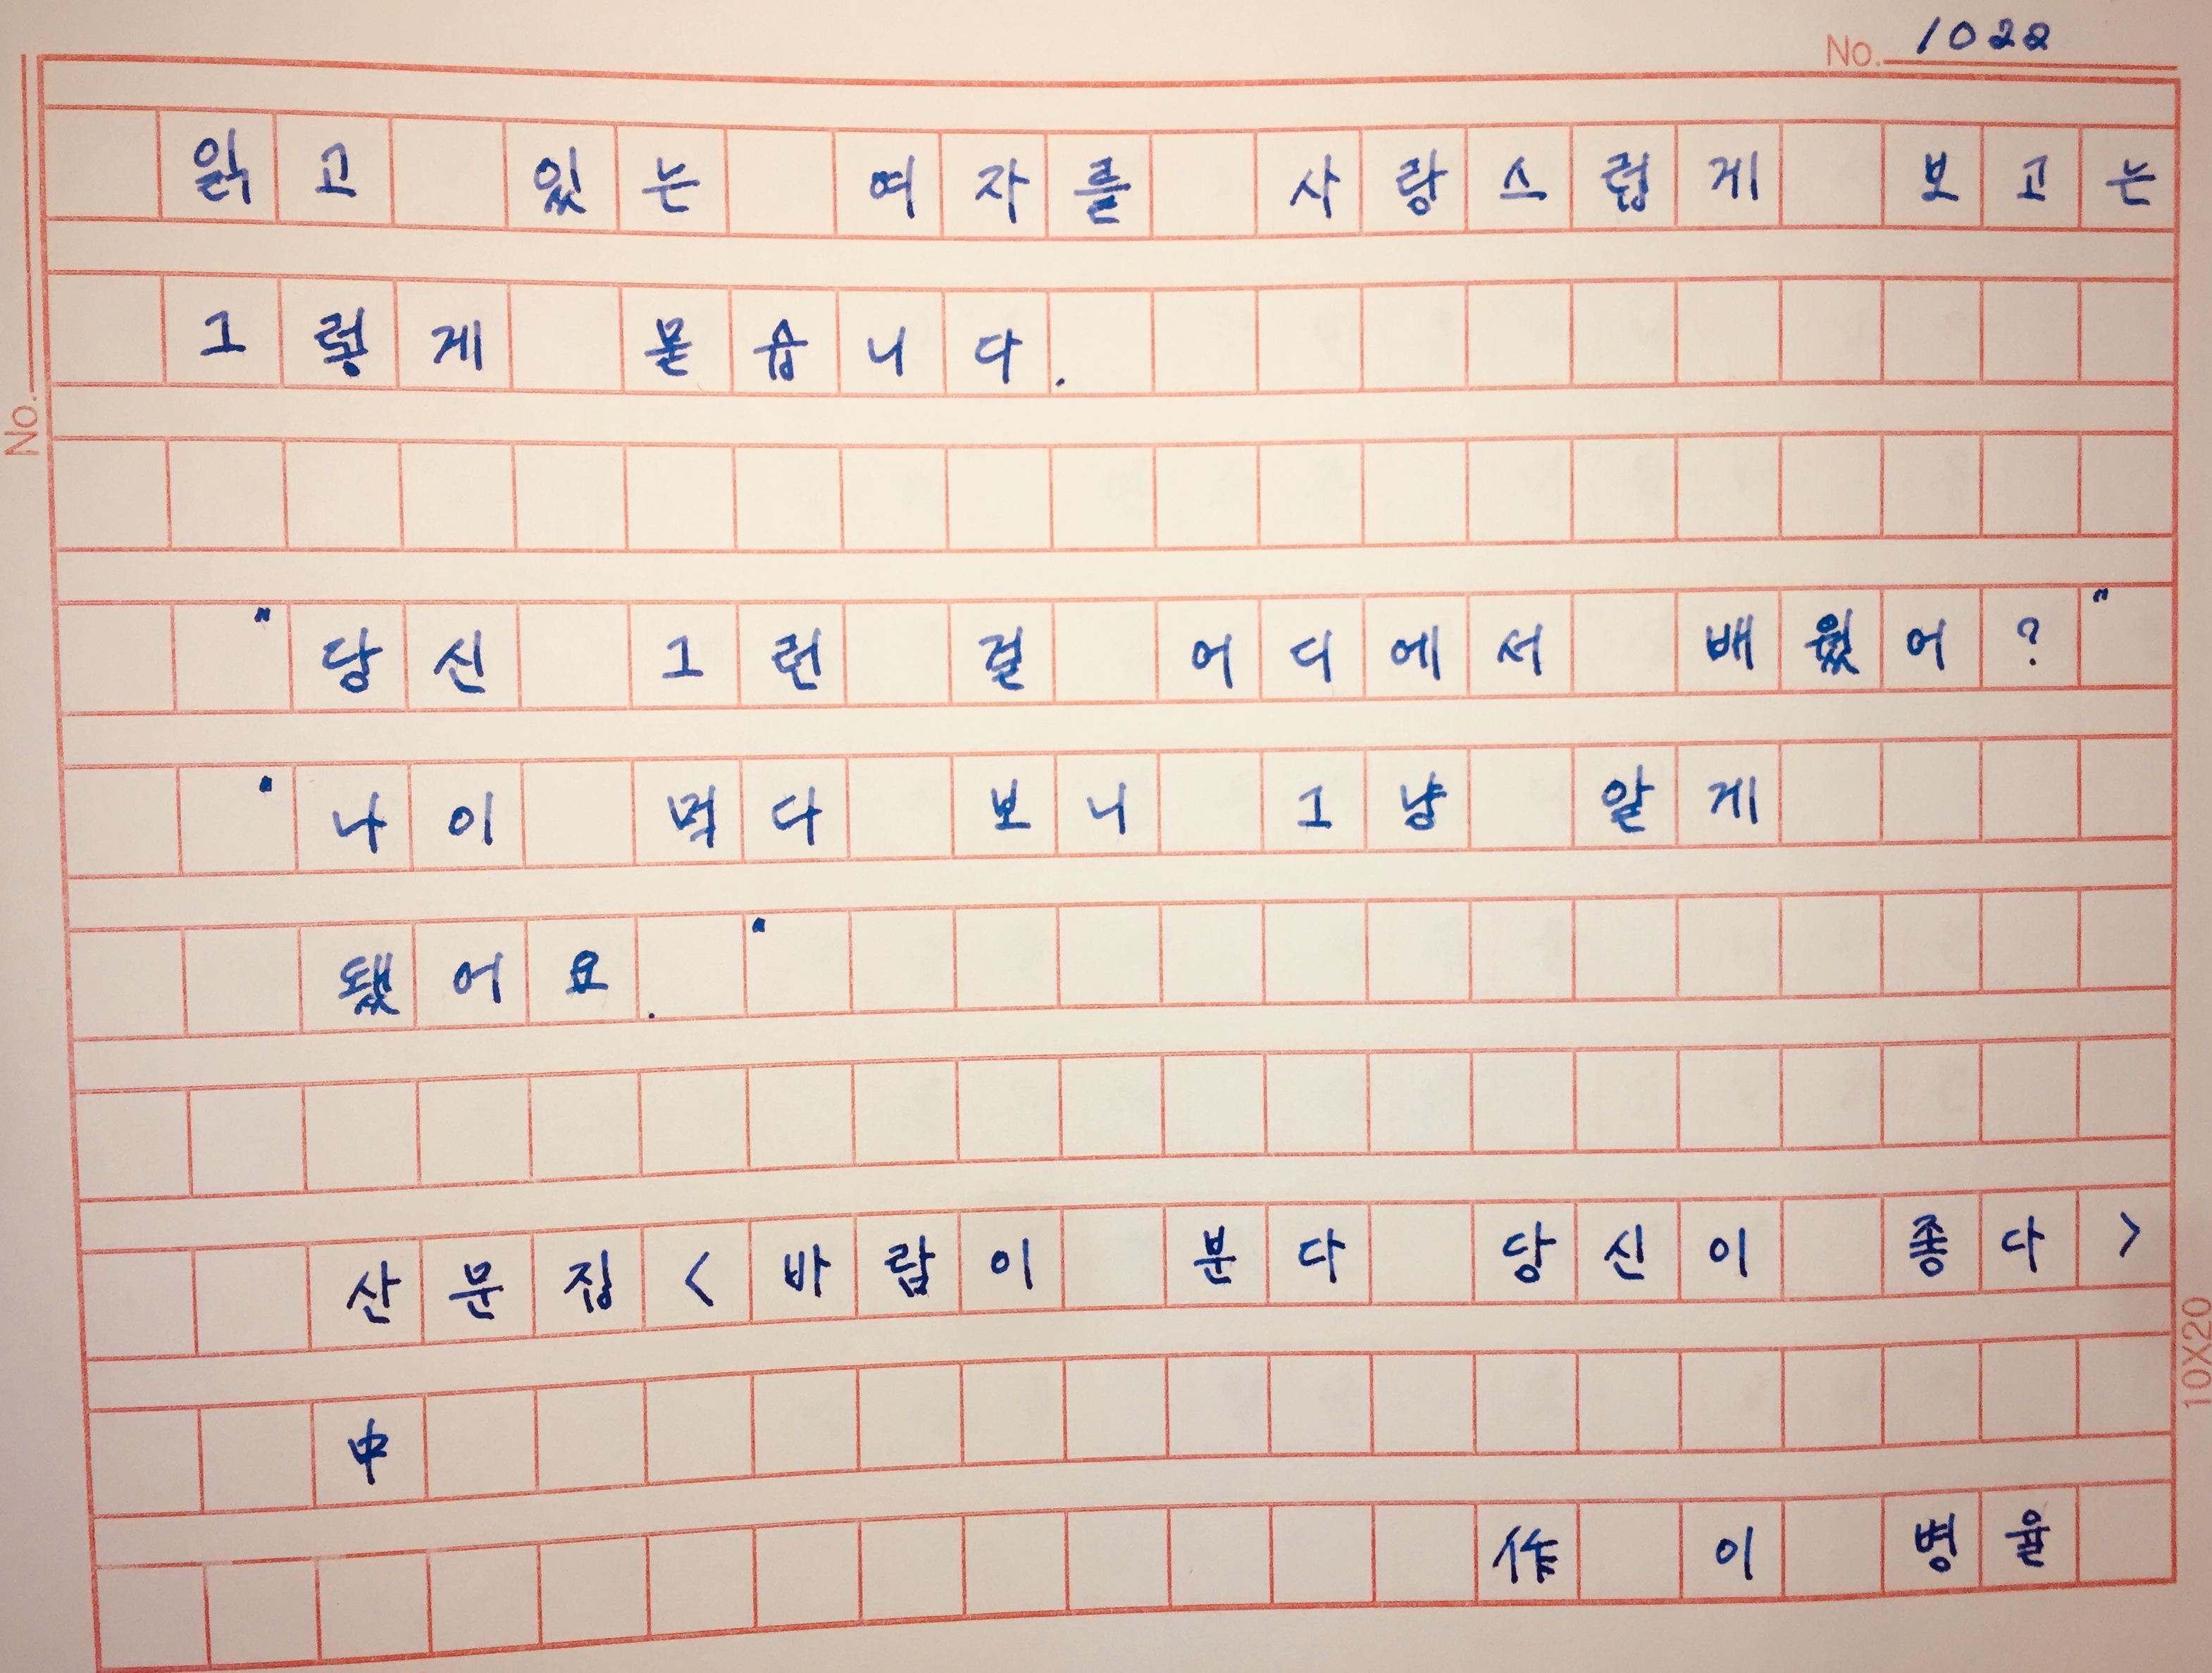 No. 1022
읽고 있는 여자를 사랑스럽게 보고는
그렇게 묻습니다.
No.
"당신 그런 걸 어디에서 배웠어?"
"나이 먹다 보니 그냥 알게
됐어요."
산문집<바람이 분다 당신이 좋다>
中
作 이 병률
10X20